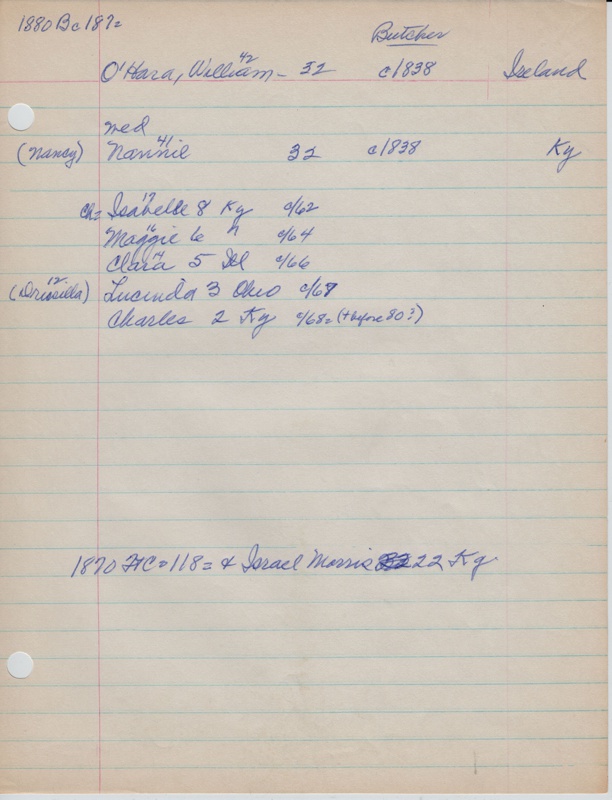 1880 Bc 187=
Butcher
42
O'Hara, William - 32 c/1838 Ireland
wed
41
(Nancy) Nannie 32 c/1838 Ky
17
ch= Isabelle 8 Ky c/62
16
Maggie 6 " c/64
14
Clara 5 Ill c/66
12
(Drissilla) Lucinda 3 Ohio c/67
Charles 2 Ky c/68= (+ before 80?)
1870 FtC=118= + Israel Morris 22 Ky